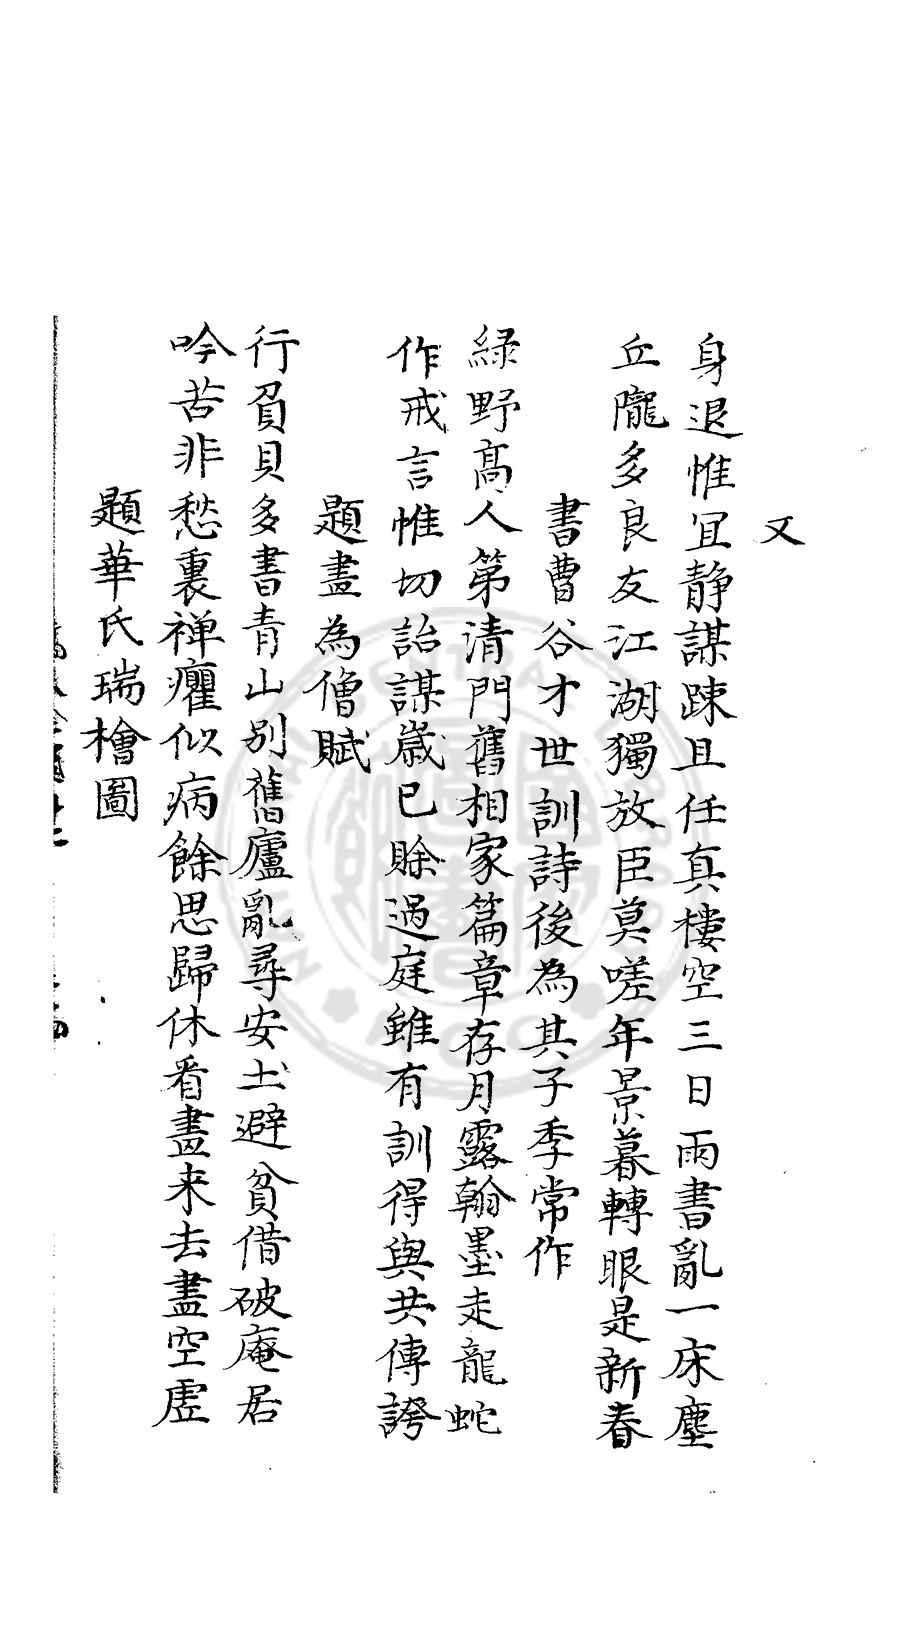 又
身退惟宜静謀踈且任真樓空三日雨書亂一床塵
丘隴多良友江湖獨放臣莫嗟年景暮轉眼是新春
書曹谷才世訓詩後為其子季常作
緑野髙人第清門舊相家篇章存月露翰墨走龍蛇
作戒言惟切詒謀歲已賖過庭雖有訓得與共傳誇
題畫為僧賦
行負貝多書青山别舊廬亂尋安土避貧借破庵居
吟苦非愁裏禅癯似病餘思歸休看畫来去盡空虛
題華氏瑞檜圖